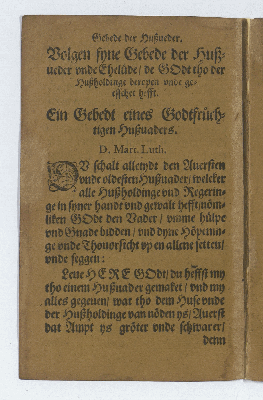 Gebede der Hußueder.
Volgen syne Gebede der Huß-
ueder vnde Ehelüde / de GOdt tho der
Hußholdinge beropen vnde ge-
esschet hefft.
Ein Gebedt eines Godtfrüch-
tigen Hußuaders.
D. Mart. Luth.
DV schalt alletydt den Auersten
vnde oldesten Hußuader / welcker
alle Hußholdinge vnd Regerin-
ge in syner handt vnd gewalt hefft / nöm-
liken GOdt den Vader / vmme hülpe
vnd Gnade bidden / vnd dyne Höpenin-
ge vnde Thouorsicht vp en allene setten /
vnde seggen:
Leue HERE GOdt / du heffst my
tho einem Hußuader gemaket / vnd my
alles gegeuen / wat tho dem Huse vnde
der Hußholdinge van nöden ys / Auerst
dat Ampt ys gröter vnde schwarer /
denn